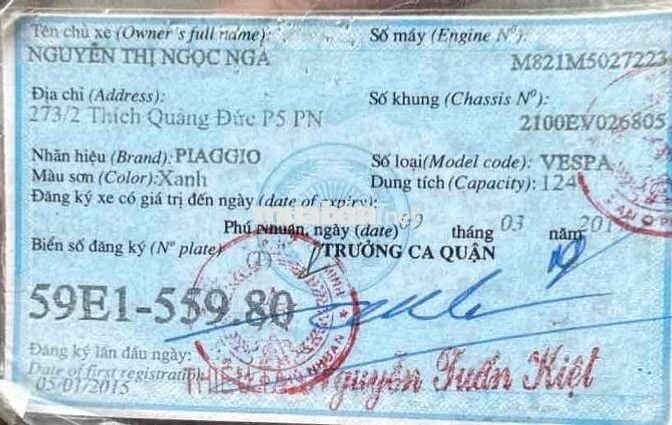 Tên chủ xe (Owner's full name):
NGUYỄN THỊ NGỌC NGA
Số máy (Engine Nº):
M821M5027223
Địa chỉ (Address):
273/2 Thích Quảng Đức P5 PN
Số khung (Chassis Nº):
2100EV026805
Nhãn hiệu (Brand): PIAGGIO
Số loại(Model code): VESPA
Màu sơn (Color): Xanh
Dung tích (Capacity): 124
Đăng ký xe có giá trị đến ngày (date of expiry):
muaban.net
Phú Nhuận, ngày (date) 09 tháng 03 năm
Biển số đăng ký (Nº plate)
TRƯỞNG CA QUẬN
59E1-559.80
Đăng ký lần đầu ngày:
Date of first registration
05/01/2015
Nguyễn Tuấn Kiệt